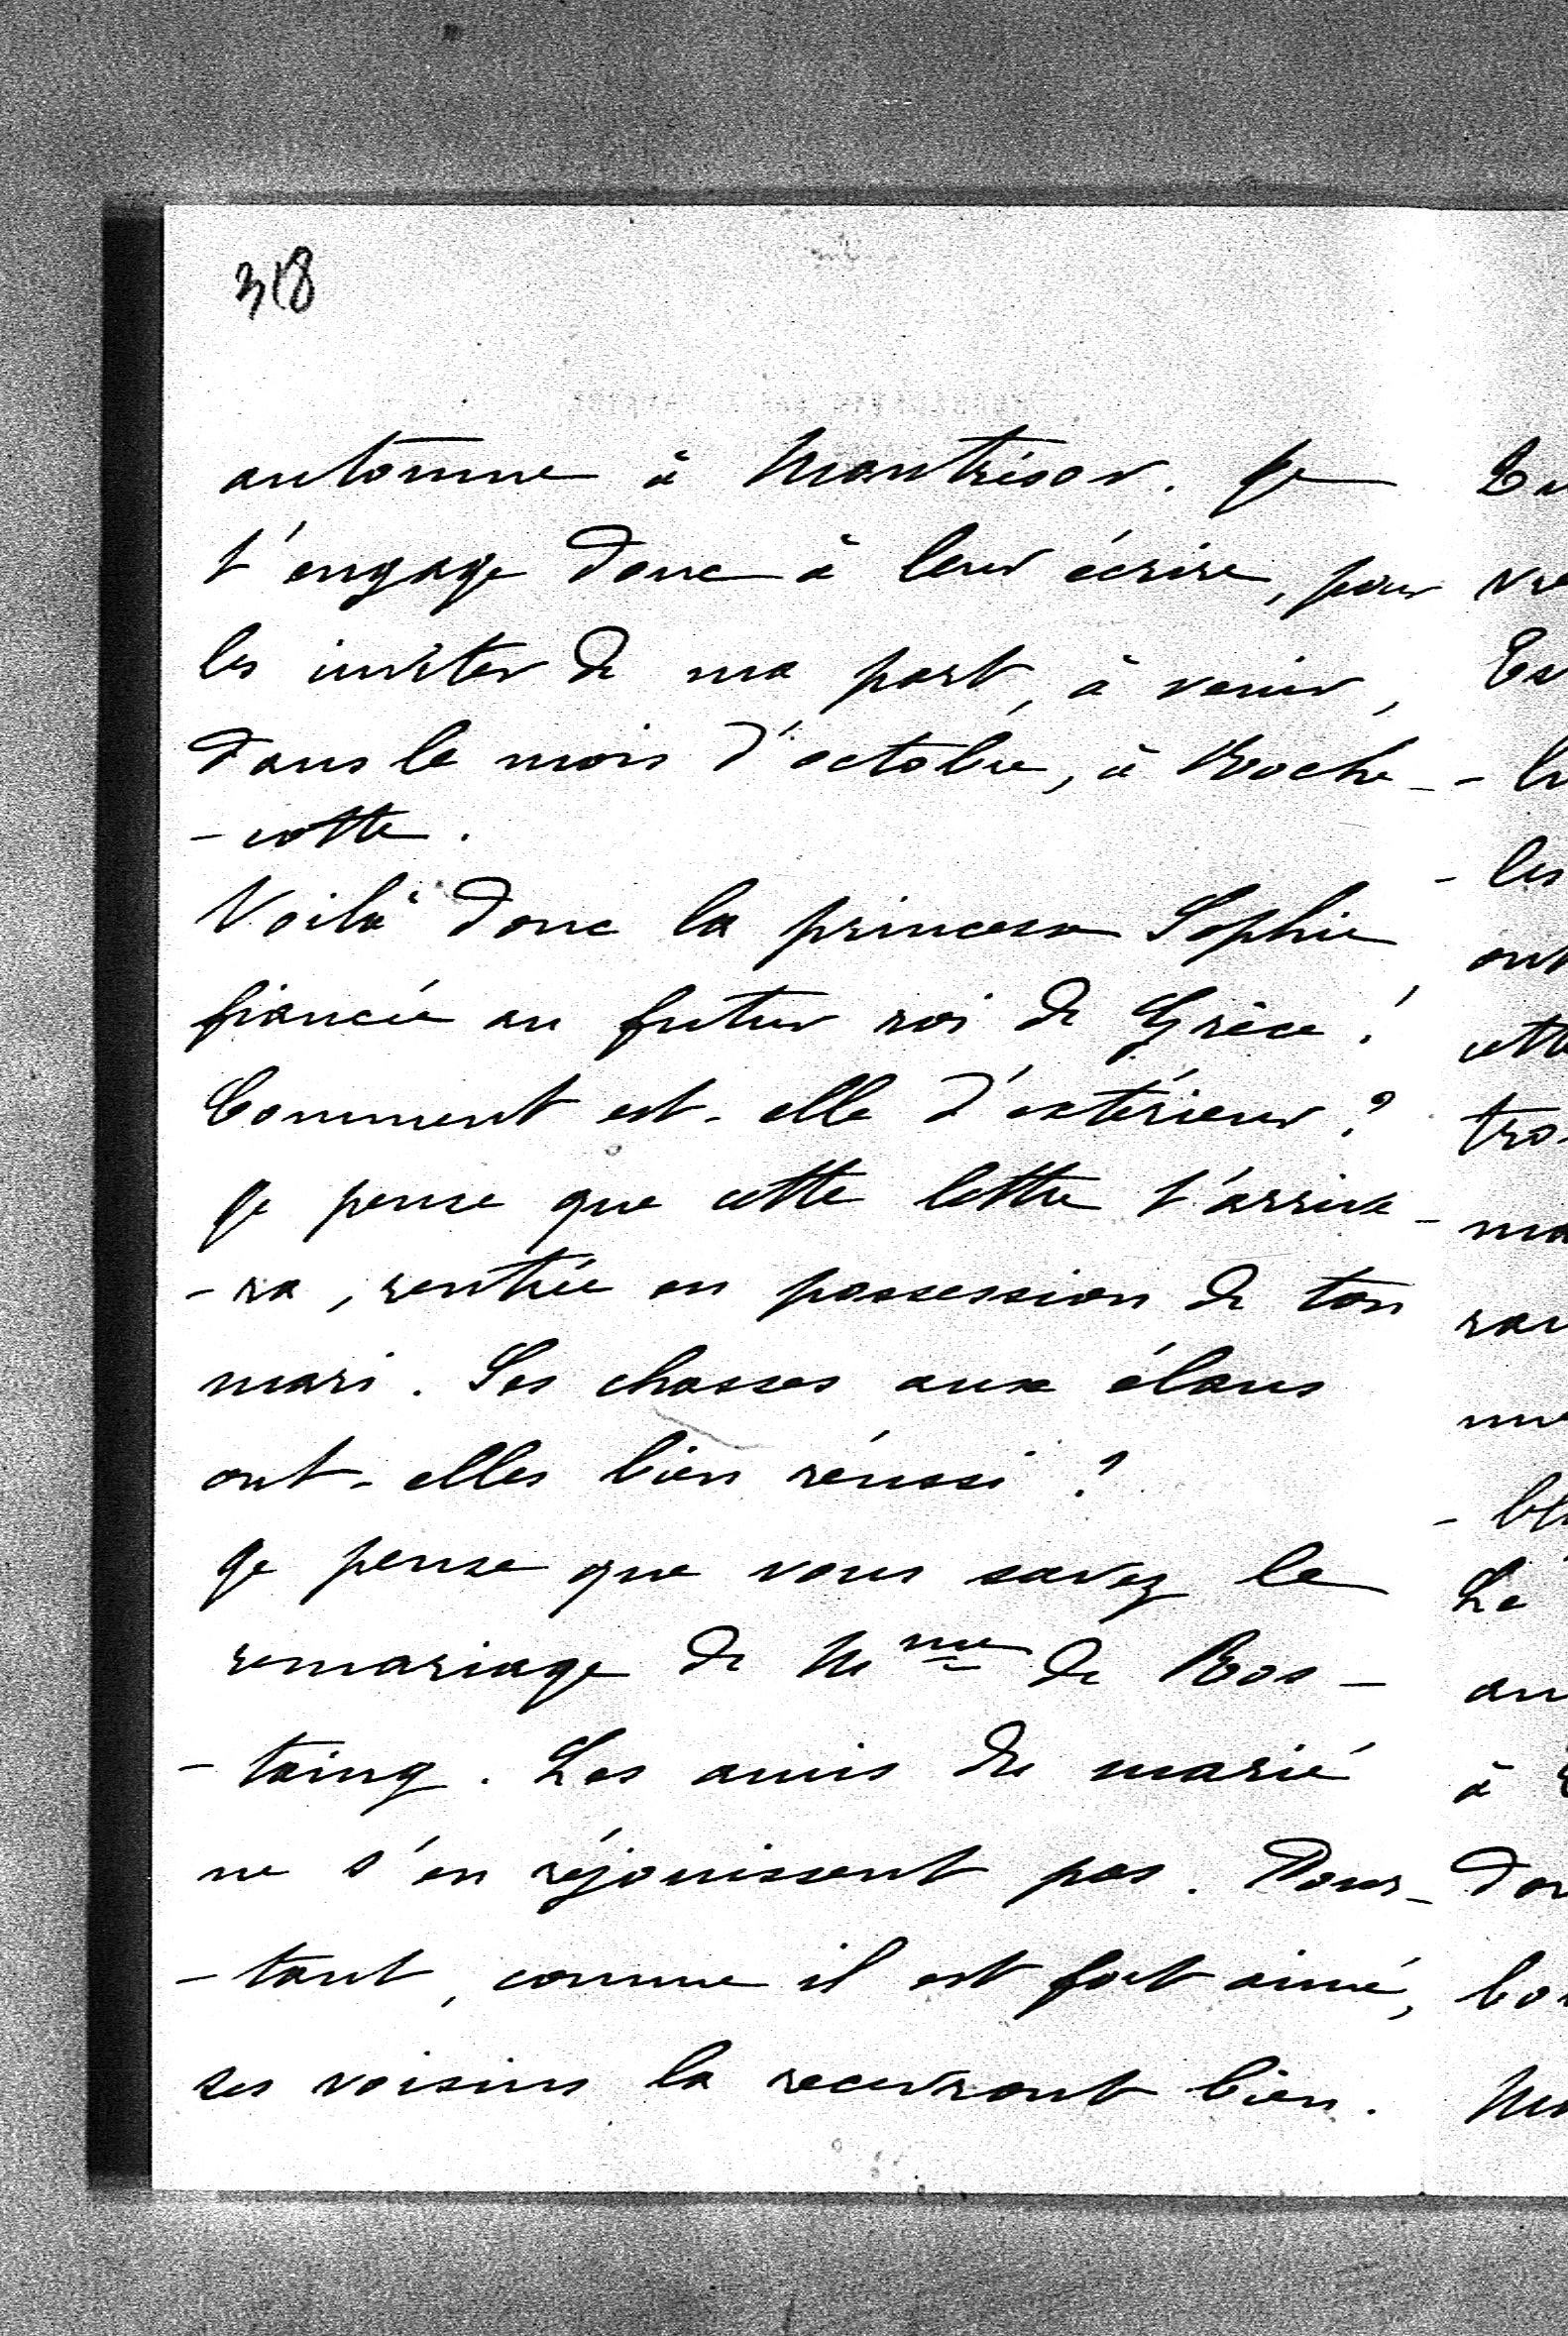 318
automne à Montrésor. Je
t'engage donc à leur écrire, pour
les inviter de ma part, à venir,
dans le mois d'octobre, à Roche-
-cotte.
Voilà donc la princesse Sophie
fiancée au futur roi de Grèce!
Comment est-elle d'extérieur?
Je pense que cette lettre t'arrive-
-ra, rentrée en possession de ton
mari. Ses chasses aux élans
ont-elles bien réussi?
Je pense que vous savez le
remariage de Mme de Ros-
-taing. Les amis du marié
ne s'en réjouissent pas. Pour-
-tant, comme il est fort aimé,
ses voisins la recevront bien.